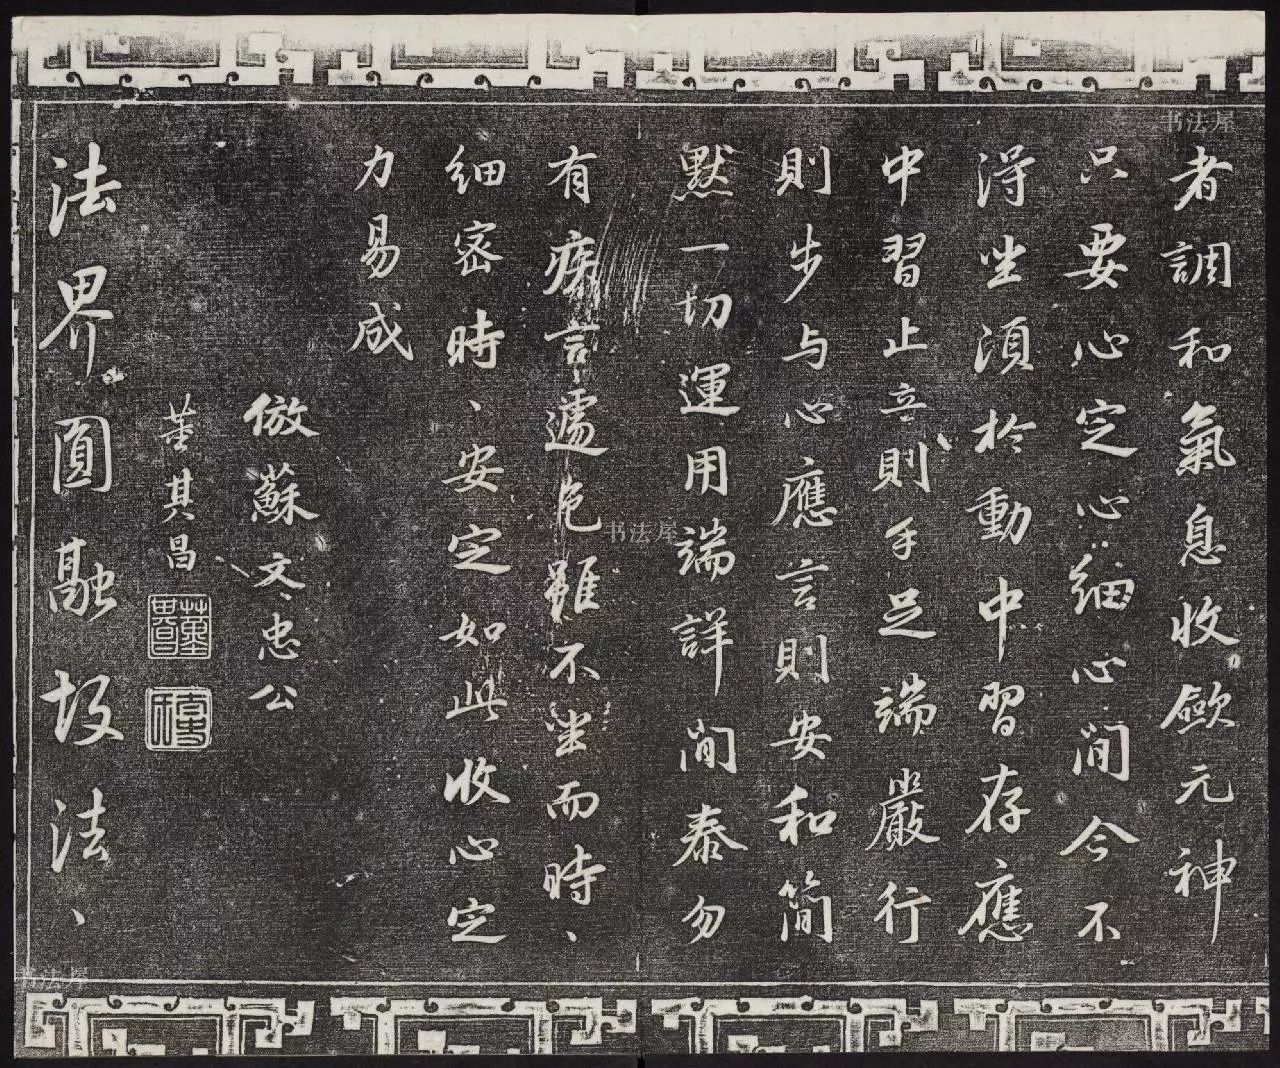 者調和氣息收斂元神
只要心定心細心閒今不
得坐須於動中習存應
中習止立則手足端嚴行
則步与心應言則安和簡
默一切運用端詳閒泰勿
有疾言遽色雖不坐而時、
細密時、安定如此收心定
力易成
倣蘇文忠公
董其昌
董其昌
法界圓融故法、
书法屋
书法屋
书法屋